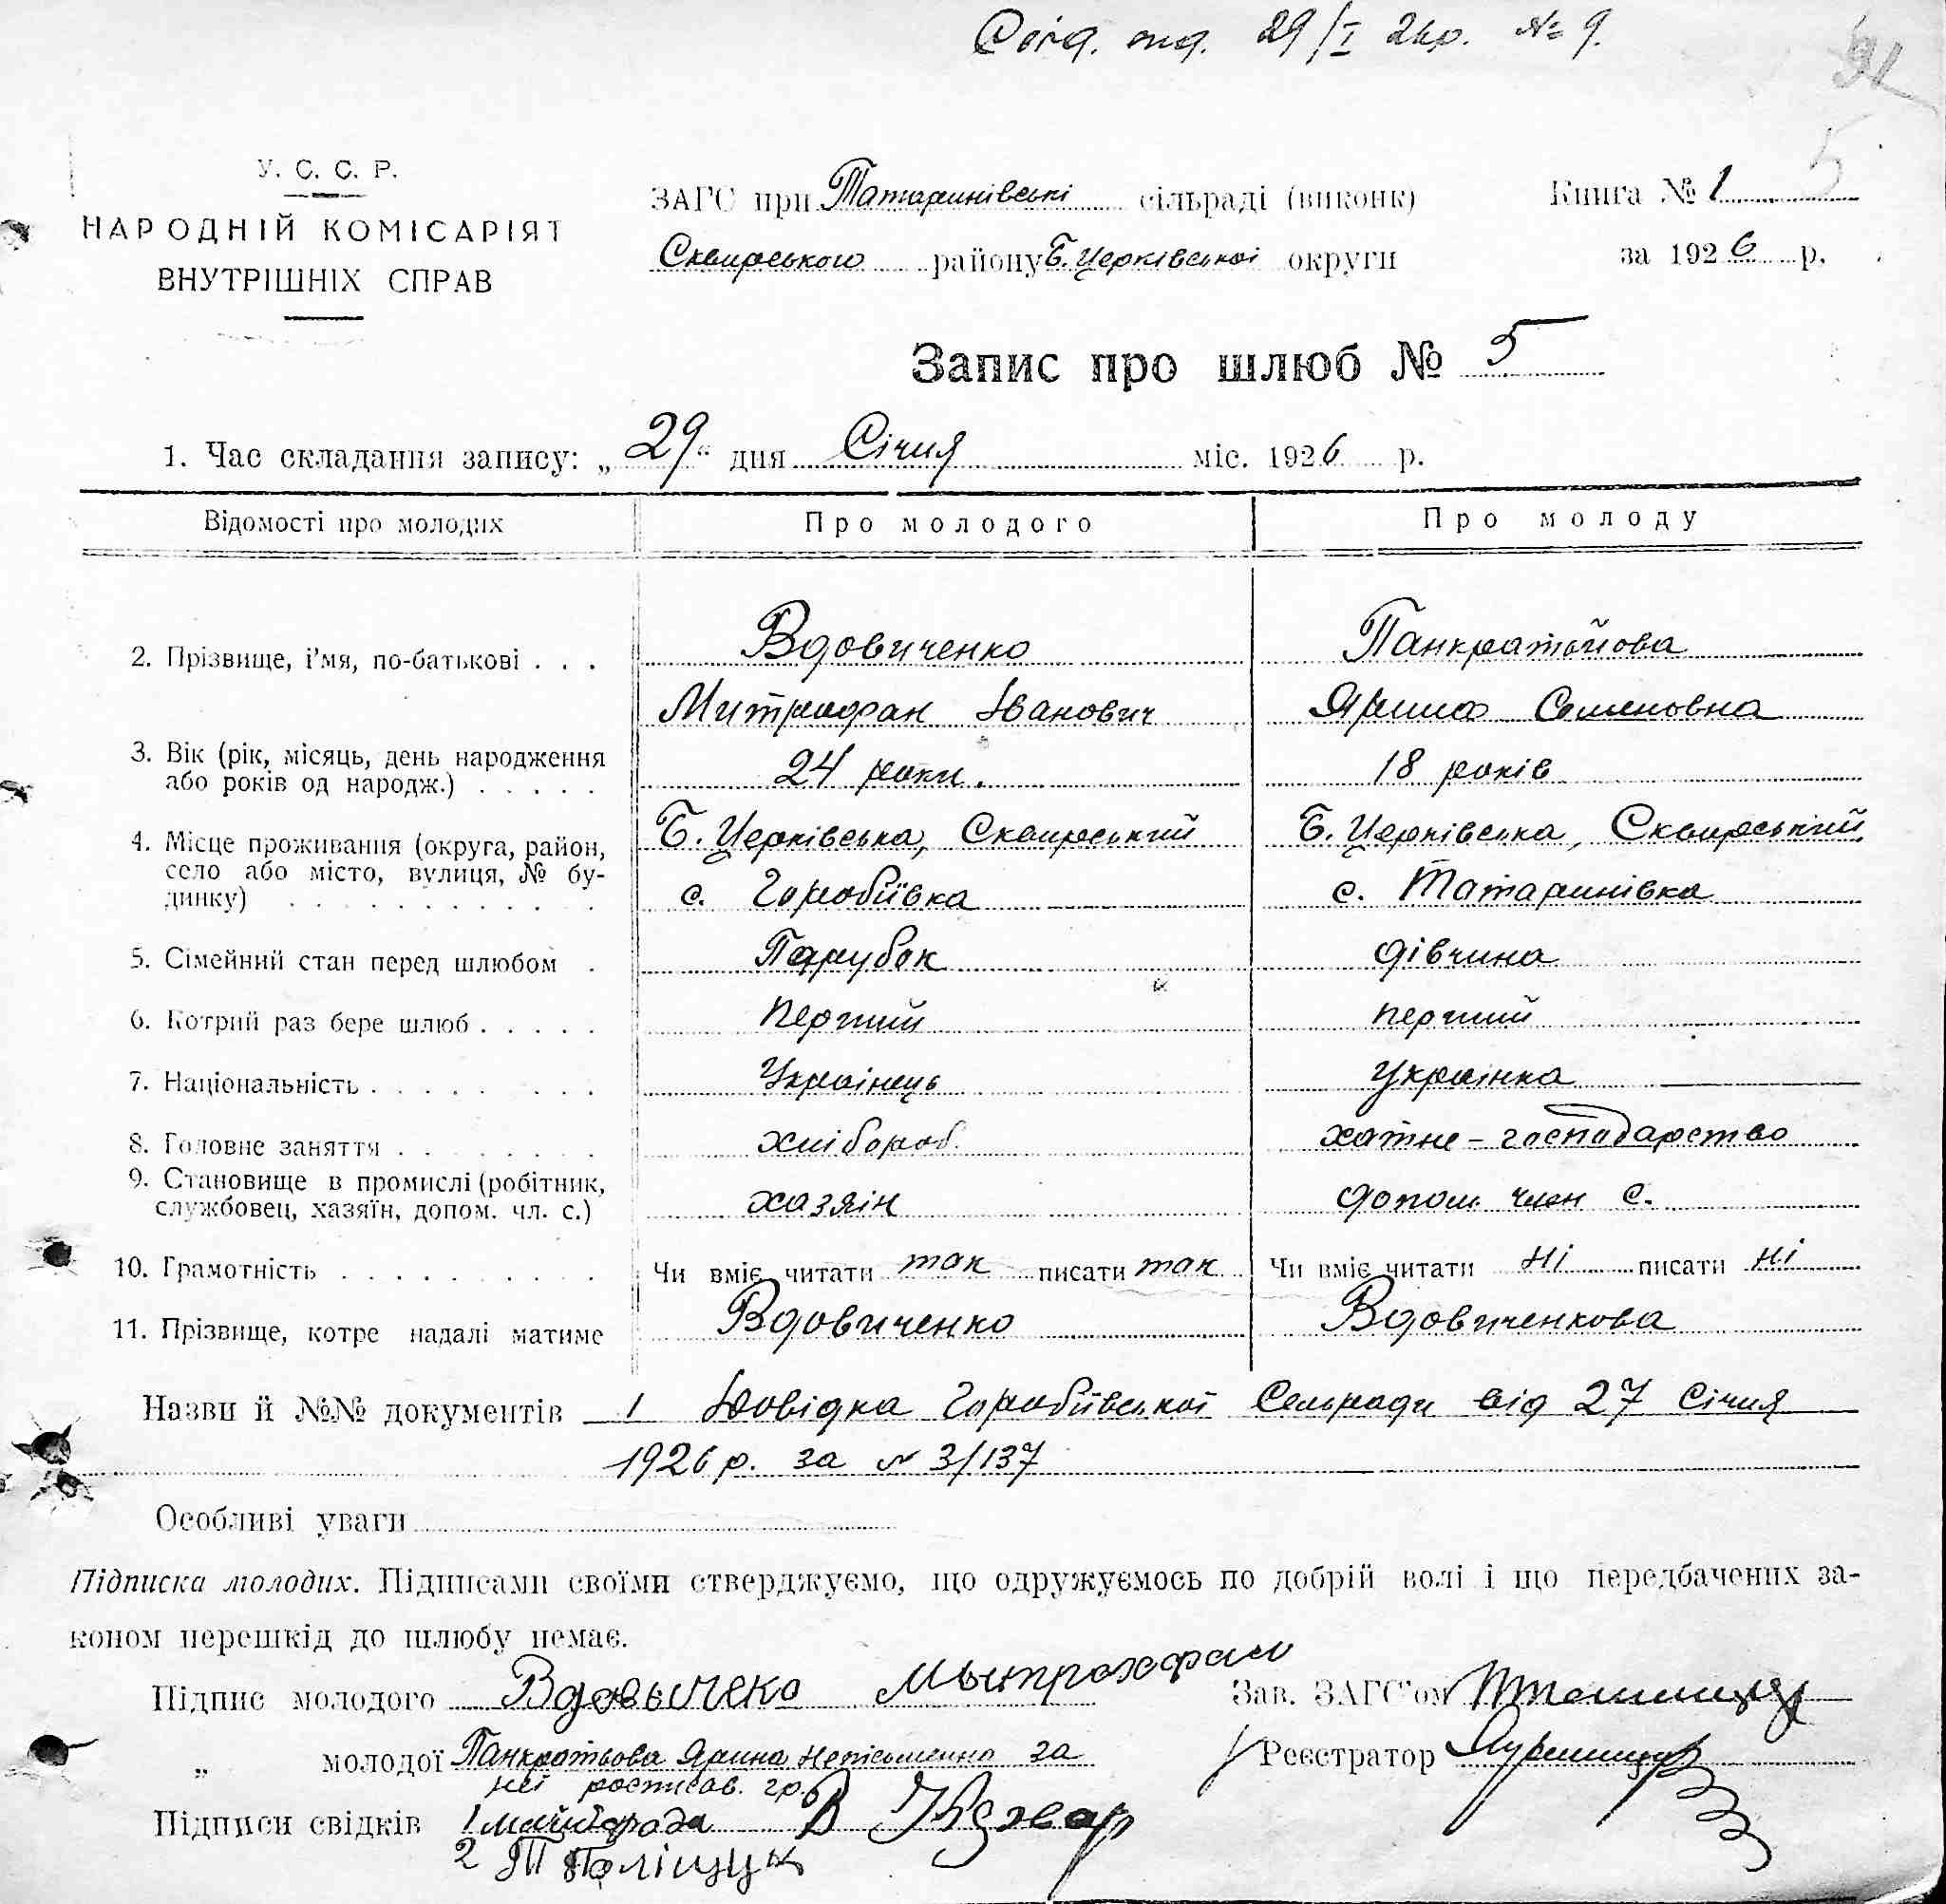 29/I 26р. № 9.
91
5
У. С. С. Р.
НАРОДНІЙ КОМІСАРІЯТ
ВНУТРІШНІХ СПРАВ
ЗАГС при Татаринівські сільраді (виконк)
Сквирського району Б. Церківської округи
Книга № 1
за 1926 р.
Запис про шлюб № 5
1. Час складання запису: „29“ дня Січня міс. 1926 р.
Відомості про молодих Про молодого Про молоду
2. Прізвище, і'мя, по-батькові . . . Вдовиченко Панкратьйова
Митрофан Іванович Ярина Семеновна
3. Вік (рік, місяць, день народження
або років од народж.) . . . . . 24 роки. 18 років
4. Місце проживання (округа, район, Б. Церківська, Сквирський Б. Церківська, Сквирський,
село або місто, вулиця, № бу-
динку) . . . . . . . . . . . с. Горобіївка с. Татаринівка
5. Сімейний стан перед шлюбом . Парубок дівчина
6. Котрий раз бере шлюб . . . . . перший перший
7. Національність . . . . . . . . Українець Українка
8. Головне заняття . . . . . . . . хлібороб. хатне - господарство
9. Становище в промислі (робітник,
службовец, хазяїн, допом. чл. с.) хазяін допом. член с.
10. Грамотність . . . . . . . . . . Чи вміє читати так писати так Чи вміє читати ні писати ні
11. Прізвище, котре надалі матиме Вдовиченко Вдовиченкова
Назви й №№ документів 1 Довідка Горобіївської Сельради від 27 Січня
1926 р. за № 3/137
Особливі уваги
Підписка молодих. Підписами своїми стверджуємо, що одружуємось по добрій волі і що передбачених за-
коном перешкід до шлюбу немає.
Підпис молодого Вдовычеко Мытрохфан Зав. ЗАГС'ом
„ молодої Панкратьова Ярина неписьменна за Реєстратор
неї росписав. гр.
Підписи свідків 1
2 Поліщук